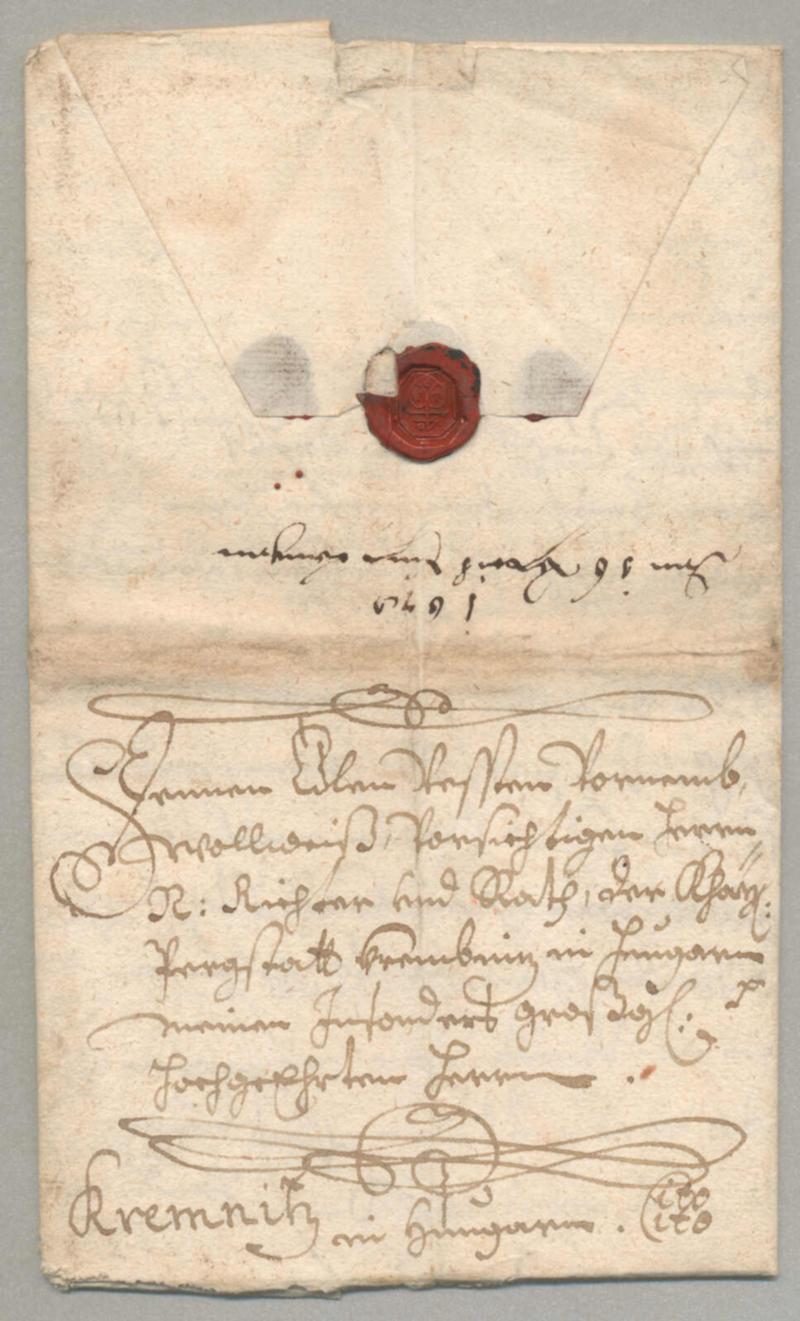 Den 16 April
1649
Dennen Edlen Vessten Vornemb,
Wollweiß, Vorsichtigen Herrn,
N: Richter und Rath, der Khay:
Pergstatt Krembnitz in Hungarn
meinen Insonders großg:
Hochgeehrten Herrn.
Kremnitz in Hungarn. Cito
Cito